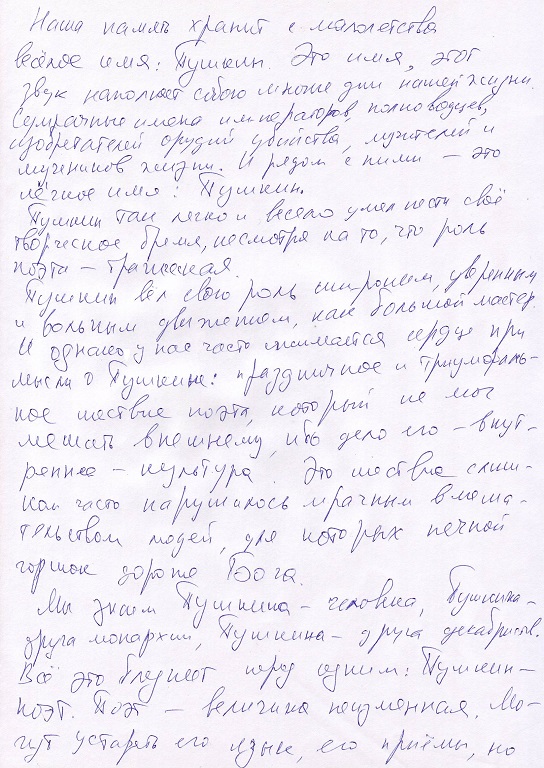 Наша память хранит с малолетства
весёлое имя: Пушкин. Это имя, этот
звук наполняет собою многие дни нашей жизни.
Сумрачные имена императоров, полководцев,
изобретателей орудий убийства, мучителей и
мучеников жизни. И рядом с ними – это
лёгкое имя: Пушкин.
Пушкин так легко и весело умел нести своё
творческое бремя, несмотря на то, что роль
поэта – трагическая.
Пушкин вёл свою роль широким, уверенным
и вольным движением, как большой мастер.
И однако у нас часто сжимается сердце при
мысли о Пушкине: праздничное и триумфаль-
ное шествие поэта, который не мог
мешать внешнему, ибо дело его – внут-
реннее – культура. Это шествие слиш-
ком часто нарушалось мрачным вмеша-
тельством людей, для которых печной
горшок дороже Бога.
Мы знаем Пушкина – человека, Пушкина –
друга монархии, Пушкина – друга декабристов.
Всё это бледнеет перед одним: Пушкин –
поэт. Поэт – величина неизменная. Мо-
гут устареть его язык, его приёмы, но